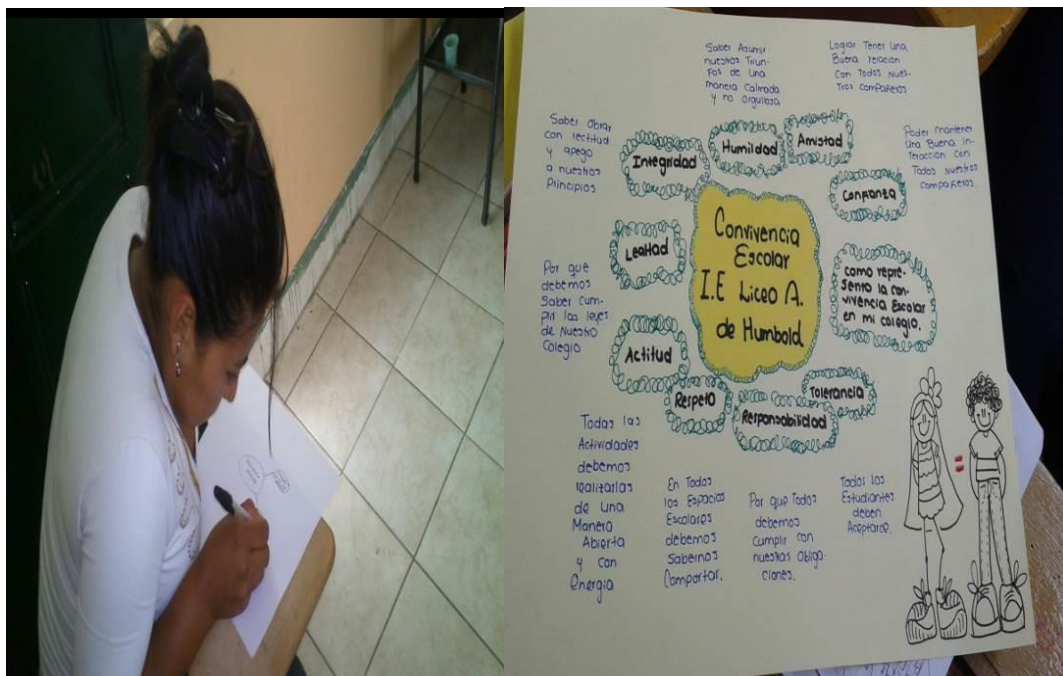 Saber Asumir
nuestros Triun-
fos de una
manera Calmada
y no orgullosa
Lograr Tener Una
Buena relación
Con Todos Nues-
Tros Compañeros
Saber Obrar
con rectitud
y apego
a nuestros
Principios
Poder mantener
Una Buena in-
Teracción con
Todos Nuestros
Compañeros.
Integridad
Humildad
Amistad
Confianza
Lealtad
Convivencia
Escolar
I.E Liceo A.
de Humbold
como repre-
sento la con-
vivencia Escolar
en mi colegio.
Por que
debemos
Saber Cum-
plir las leyes
de Nuestro
Colegio
Actitud
Respeto
Responsabilidad
Tolerancia
Todas las
Actividades
debemos
realizarlas
de una
Manera
Abierta
y con
Energia
En Todos
los Espacios
Escolares
debemos
Sabernos
Comportar.
Por que Todos
debemos
Cumplir con
nuestras Obliga-
ciones.
Todos los
Estudiantes
deben
Aceptarce.
=